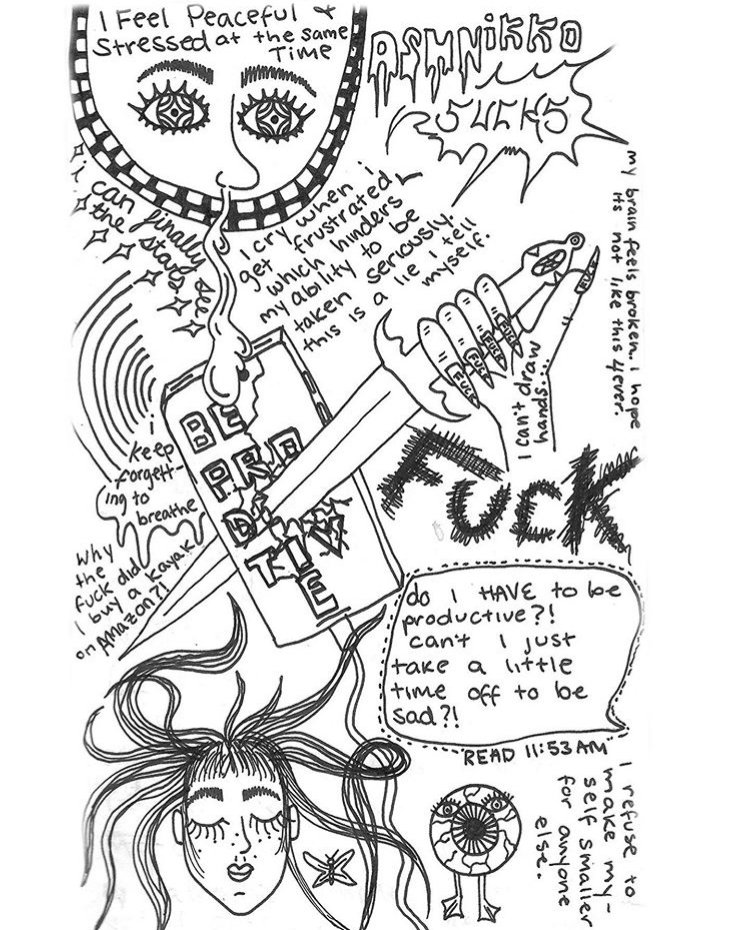 I Feel Peaceful &
Stressed at the same
Time
ASHNIKKO
SUCKS
my brain feels broken.. i hope
its not like this 4ever.
i can finally see
the stars
I cry when i
get frustrated
which hinders
my ability to be
taken seriously.
this is a lie I tell
myself.
FUCK
FUCK
FUCK
FUCK
FUCK
I can't draw
hands....
BE
PRO
DUC
TIVE
i
keep
forgett-
ing to
breathe
FUCK
Why
the
fuck did
I buy a kayak
on AMAZON?!
do I HAVE to be
productive?!
can't I just
take a little
time off to be
sad?!
READ 11:53 AM
I refuse to
make my-
self smaller
for anyone
else.